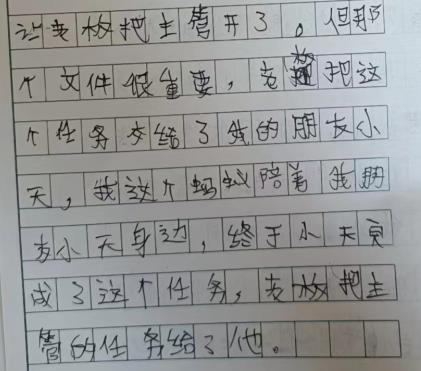 让老板把主管开了。但那
个文件很重要，老板把这
个任务交给了我的朋友小
天，我这个蚂蚁陪着我朋
友小天身边，终于小天完
成了这个任务，老板把主
管的任务给了他。